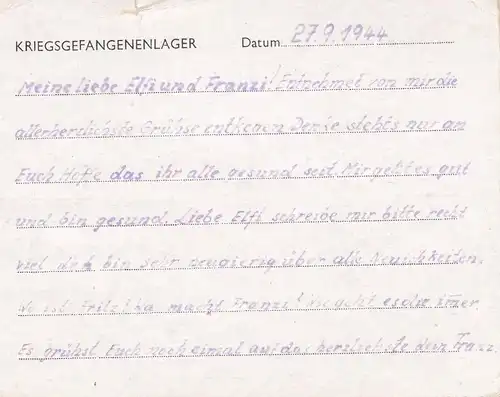 KRIEGSGEFANGENENLAGER Datum 27.9.1944
Meine liebe Elfi und Franzi! Entnehmet von mir die
allerherzlichste Grühse entkegen Denke stehts nur an
Euch Hoffe das ihr alle gesund seit. Mir geht es gut
und bin gesund. Liebe Elfi schreibe mir bitte recht
viel den bin sehr neugierig über alle Neuichkeiten.
Wo ist Fritz macht Franzi! Wie geht es dir imer.
Es grühst Euch noch eimal auf das herzlichste dein Franz.